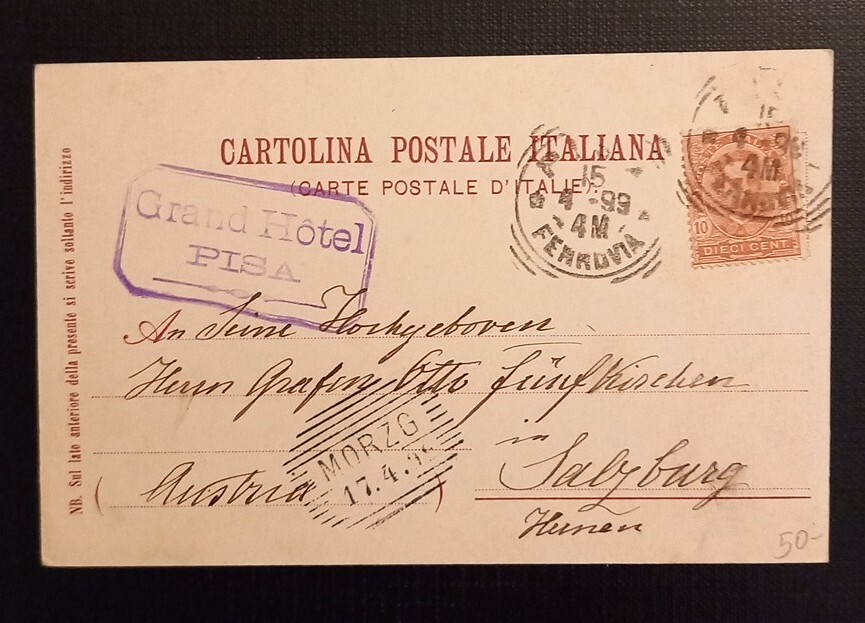 CARTOLINA POSTALE ITALIANA
(CARTE POSTALE D'ITALIE)
Grand Hôtel
PISA
15
4-99
4M
FERROVIA
15
4M
10
DIECI CENT.
An Seine Hochgeboren
Herrn Grafen Otto Fünfkirchen
in
Salzburg
(Austria)
MORZG
17.4.
50-
NB. Sul lato anteriore della presente si scrive soltanto l'indirizzo